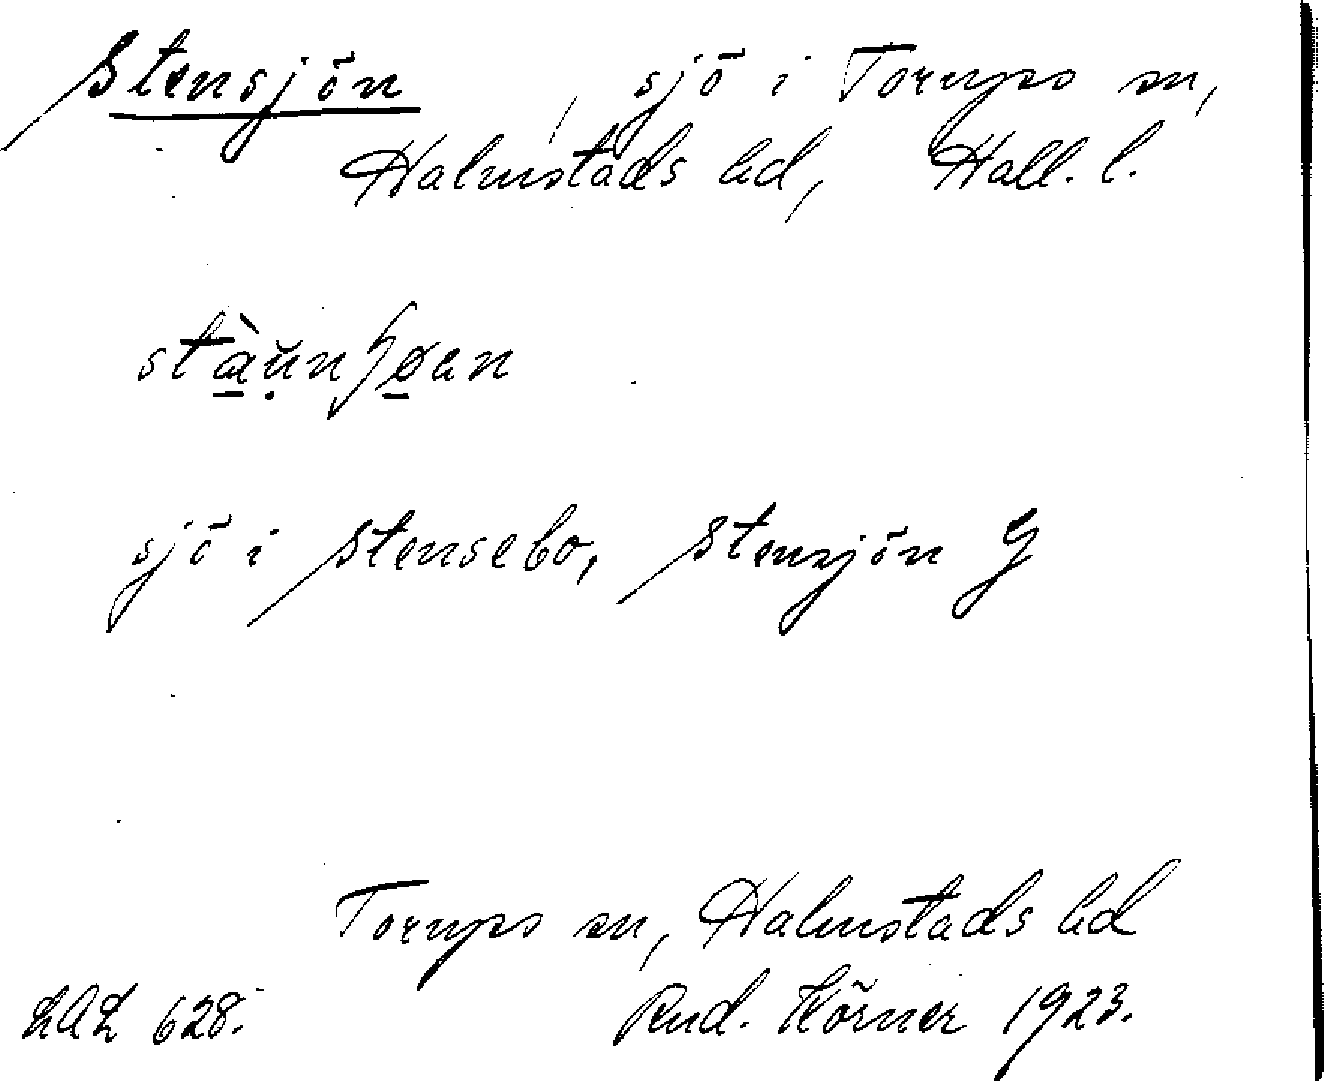 Stensjön, sjö i Torups sn,
Halmstads hd, Hall. l.
sjö i Stensebo, Stensjön G
Torups sn, Halmstads hd
LAL 628. Rud. Hörner 1923.